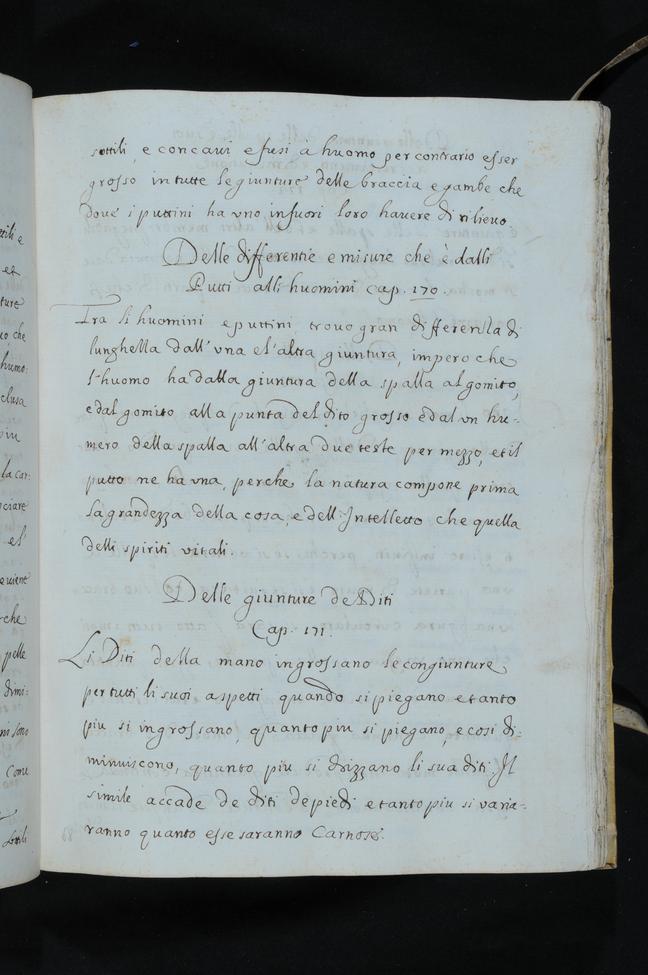 sottili, e concavi e fusi à huomo per contrario esser
grosso in tutte le giunture delle braccia e gambe che
dove i puttini ha vno in fuori loro havere di rilievo
Delle differentie e misure che è dalli
Putti alli huomini Cap. 170.
Tra li huomini e puttini trovo gran differenza di
lunghezza dall' vna e l'altra giuntura, impero che
l'huomo ha dalla giuntura della spalla al gomito,
e dal gomito alla punta del dito grosso e dal vn hu-
mero della spalla all'altra due teste per mezzo, et il
putto ne ha vna, perche la natura compone prima
la grandezza della cosa, e dell' Intelletto che quella
delli spiriti vitali.
Delle giunture de Diti
Cap. 171.
Li Diti della mano ingrossano le congiunture
per tutti li suoi aspetti quando si piegano e tanto
piu si ingrossano, quanto piu si piegano, e cosi di-
minuiscono, quanto piu si drizzano li sua diti. Il
simile accade de diti de piedi e tanto piu si varia-
ranno quanto esse saranno Carnose.
ttili e
et
ture
uo che
humo:
clusa
piu
la car:
el'
e viene
che
pelle
dimi:
ni sono
Come
sottili